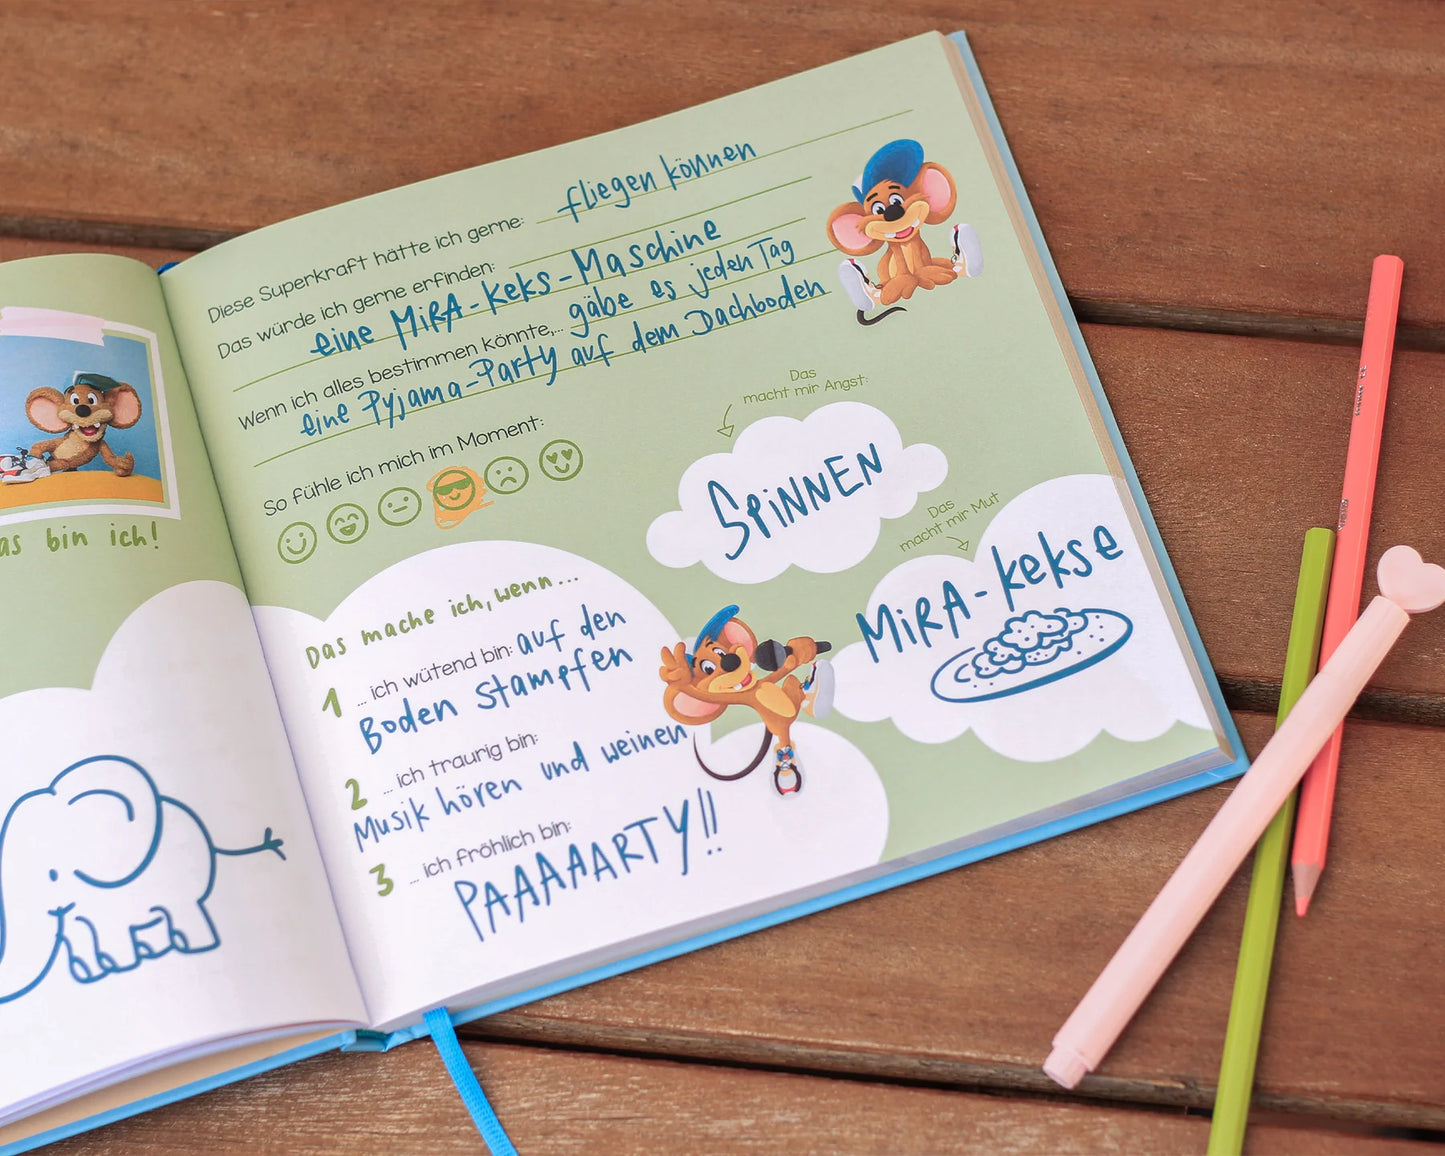 as bin ich!
Diese Superkraft hätte ich gerne: fliegen können
Das würde ich gerne erfinden:
eine MiRA-Keks-Maschine
Wenn ich alles bestimmen könnte,... gäbe es jeden Tag
eine Pyjama-Party auf dem Dachboden
So fühle ich mich im Moment:
Das
macht mir Angst:
SPiNNEN
Das
macht mir Mut
MiRA-Kekse
Das mache ich, wenn...
1 ... ich wütend bin: auf den
Boden stampfen
2 ... ich traurig bin:
Musik hören und weinen
3 ... ich fröhlich bin:
PAAAAARTY!!